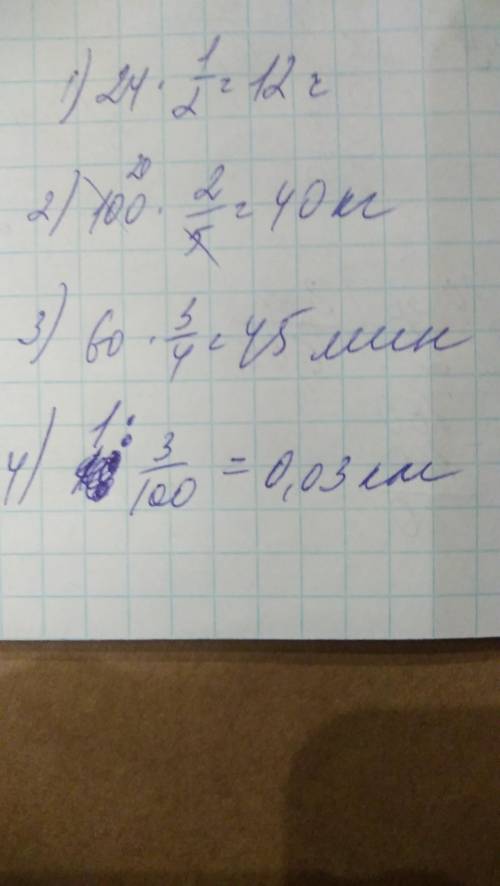 1) 24 · 1/2 = 12 ч
2) 100 20 · 2/5 = 40 кг
3) 60 · 3/4 = 45 мин
4) 1 : 3/100 = 0,03 км